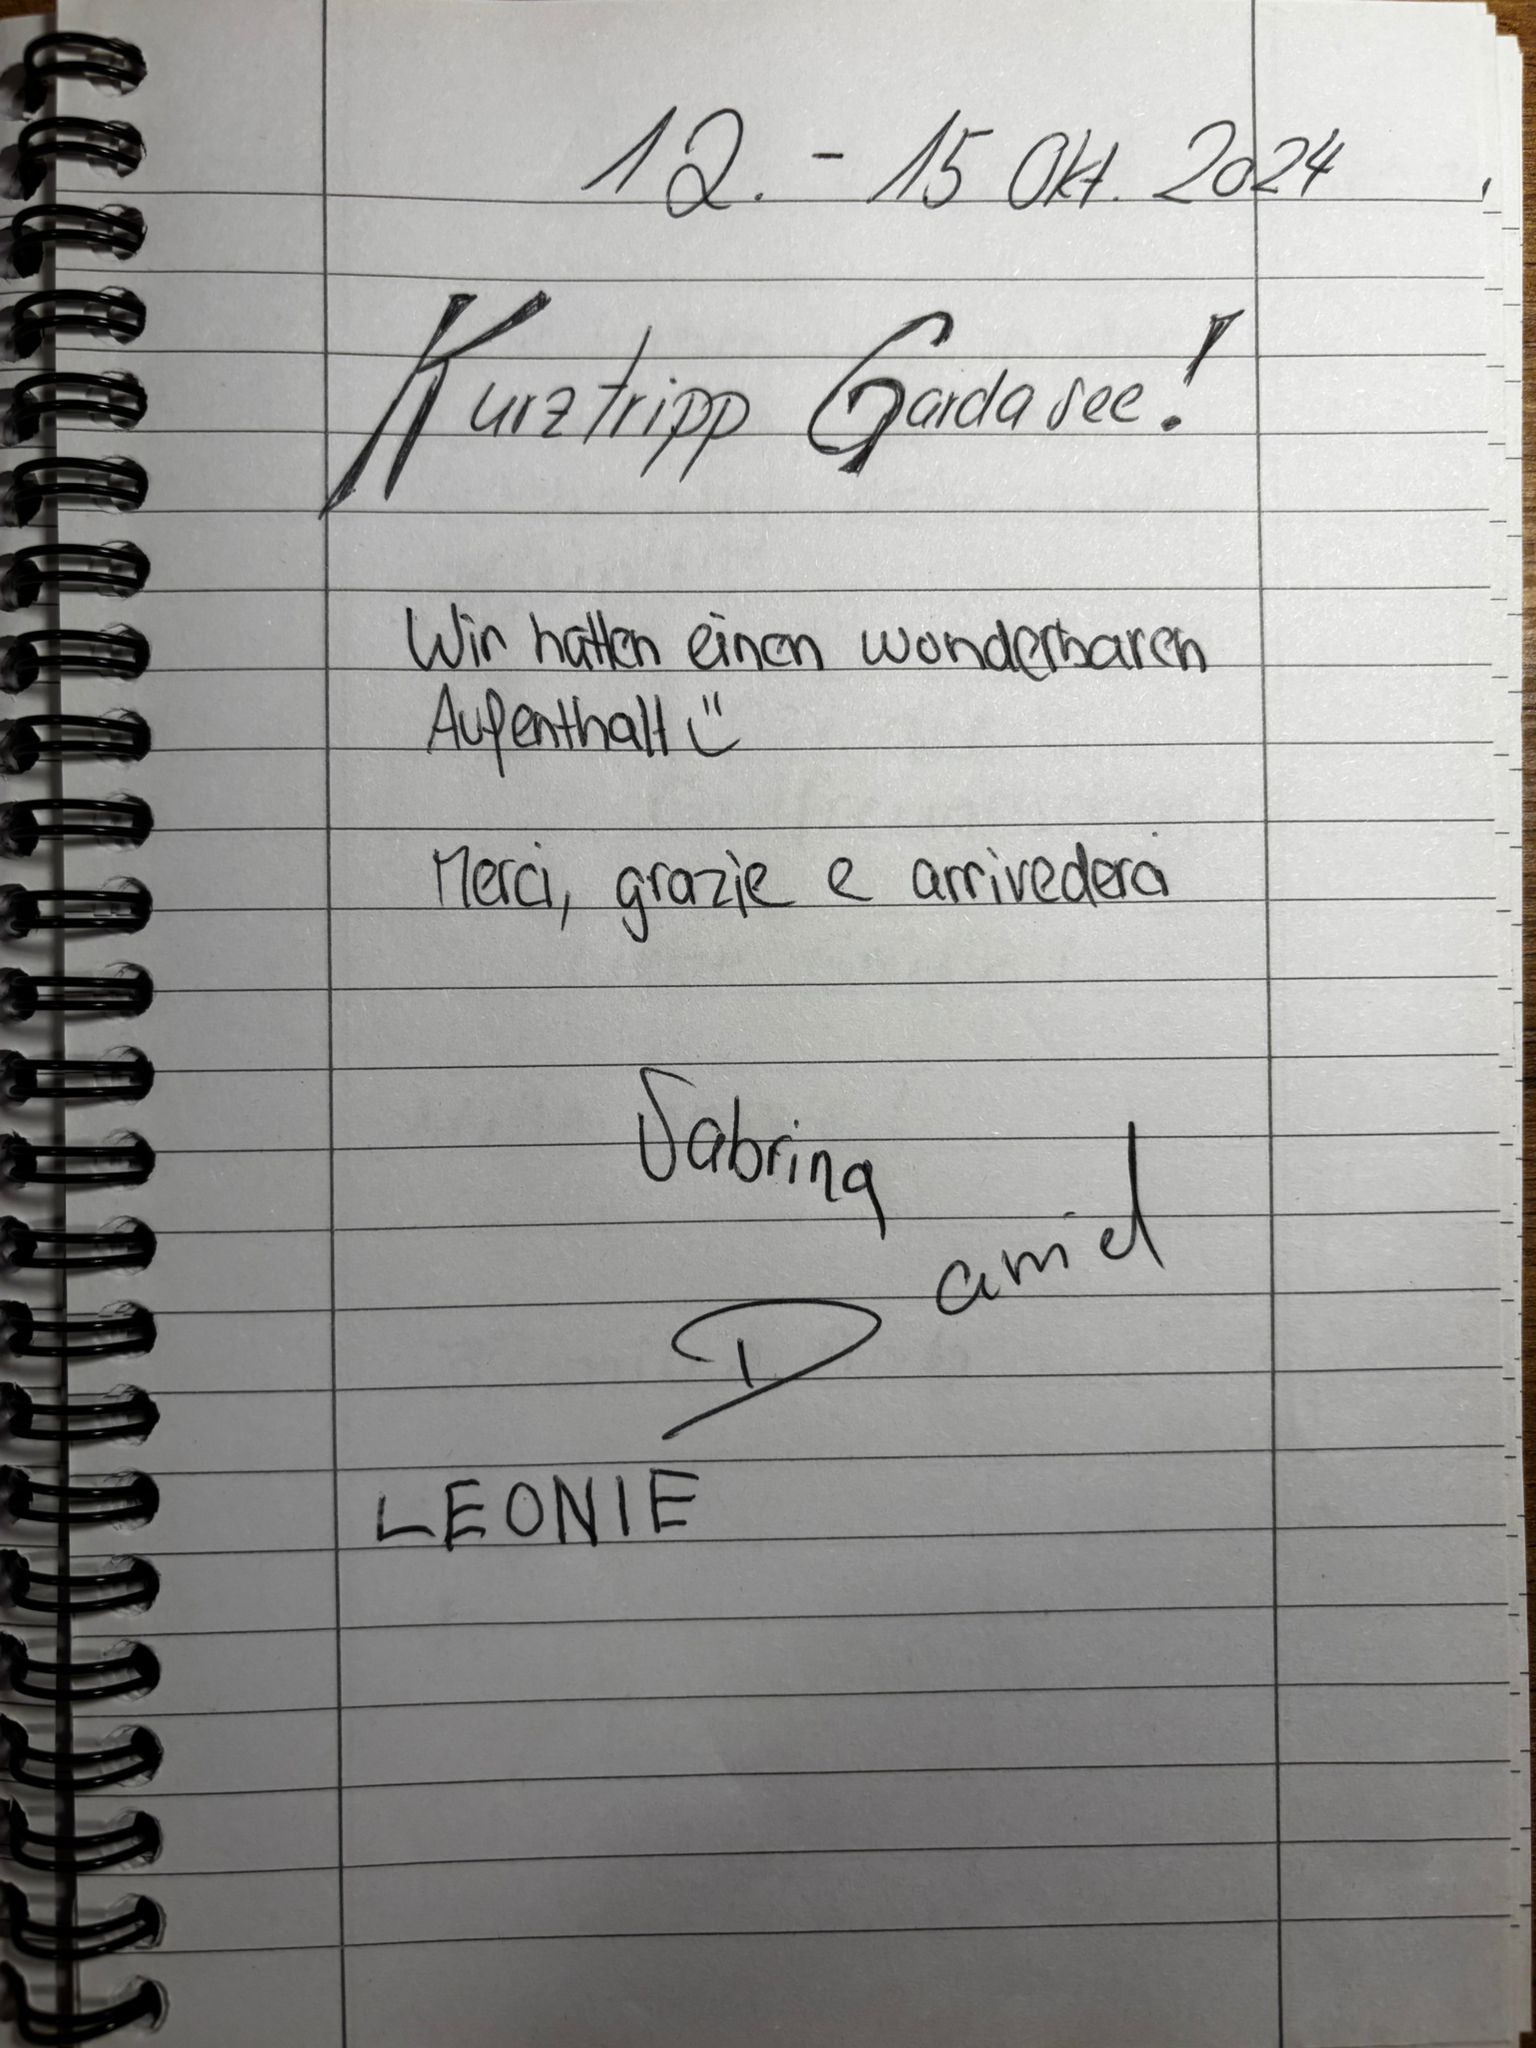 12. - 15 Okt. 2024
Kurztripp Gardasee!
Wir hatten einen wonderbaren
Aufenthalt ツ
Merci, grazie e arrivederci
Sabrina
Daniel
LEONIE